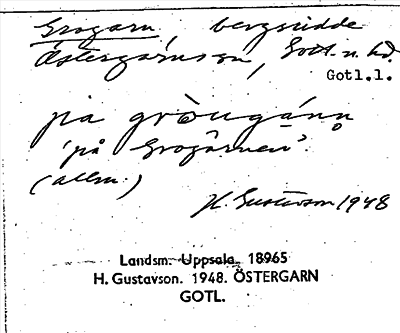 Grogarn, bergsudde
Östergarnsn, Gotl. n. hd.
Gotl.l.
pa gròugánn
'på Grogarnen'.
(allm.)
H. Gustavson 1948
Landsm. Uppsala. 18965
H. Gustavson. 1948. ÖSTERGARN
GOTL.